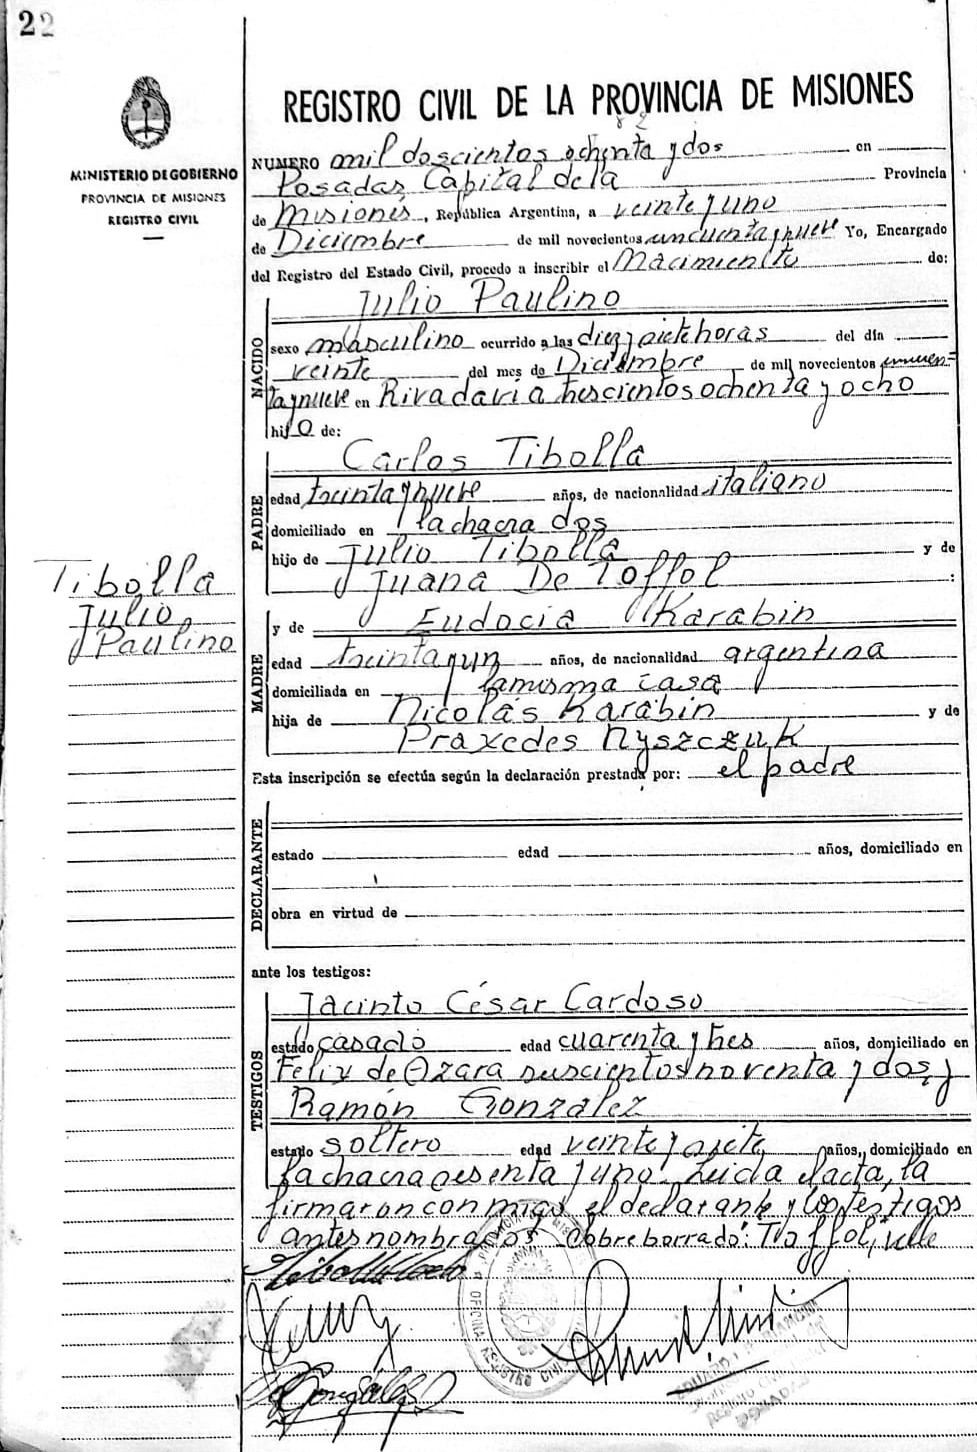 22
REGISTRO CIVIL DE LA PROVINCIA DE MISIONES
MINISTERIO DE GOBIERNO
PROVINCIA DE MISIONES
REGISTRO CIVIL
NUMERO mil doscientos ochenta y dos en
Posadas Capital de la Provincia
de Misiones, República Argentina, a veinte y uno
de Diciembre de mil novecientos cincuenta y nueve Yo, Encargado
del Registro del Estado Civil, procedo a inscribir el Nacimiento de:
NACIDO
Julio Paulino
sexo masculino ocurrido a las diez y siete horas del día
veinte del mes de Diciembre de mil novecientos cincuen-
ta y nueve en Rivadavia trescientos ochenta y ocho
hijo de:
PADRE
Carlos Tibolla
edad treinta y nueve años, de nacionalidad italiano
domiciliado en la chacra dos
hijo de Julio Tibolla y de
Juana De Toffol :
Tibolla
Julio
Paulino
MADRE
y de Eudocia Karabin
edad treinta y un años, de nacionalidad argentina
domiciliada en la misma casa
hija de Nicolás Karabin y de
Praxedes Nyszczuk
Esta inscripción se efectúa según la declaración prestada por: el padre
DECLARANTE
estado edad años, domiciliado en
obra en virtud de
ante los testigos:
TESTIGOS
Jacinto César Cardoso
estado casado edad cuarenta y tres años, domiciliado en
Felix de Azara seiscientos noventa y dos, y
Ramón González
estado soltero edad veinte y siete años, domiciliado en
la chacra sesenta y uno. Leida el acta, la
firmaron conmigo, el declarante y los testigos
antes nombrados. Sobre borrado:
González